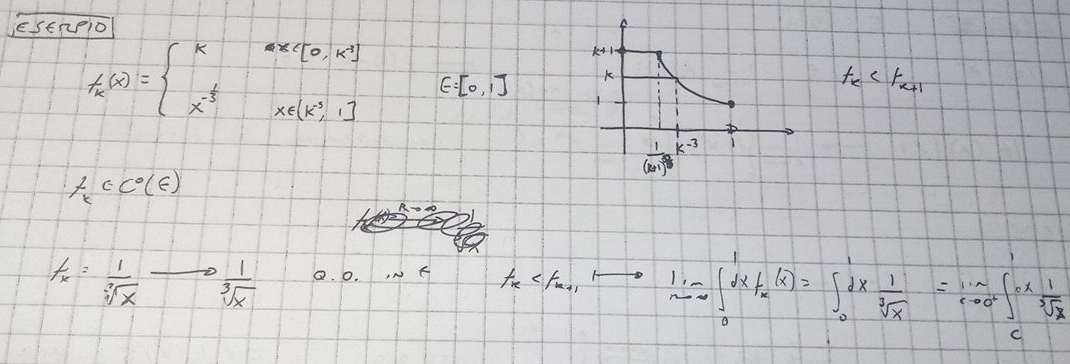 ESEMPIO
f_k(x) = { k   x∈[0, k⁻³]
x^(-1/3)   x∈(k⁻³, 1]
E=[0,1]
k+1
k
1
1/(k+1)³   k⁻³   1
f_k < f_{k+1}
f_k ∈ C⁰(E)
f_k = 1/∛x ⟶ 1/∛x   Q.O. IN E   f_k < f_{k+1} ⟼ lim_{n→∞} ∫₀¹ dx f_k(x) = ∫₀¹ dx 1/∛x = lim_{c→0⁺} ∫_c¹ dx 1/∛x